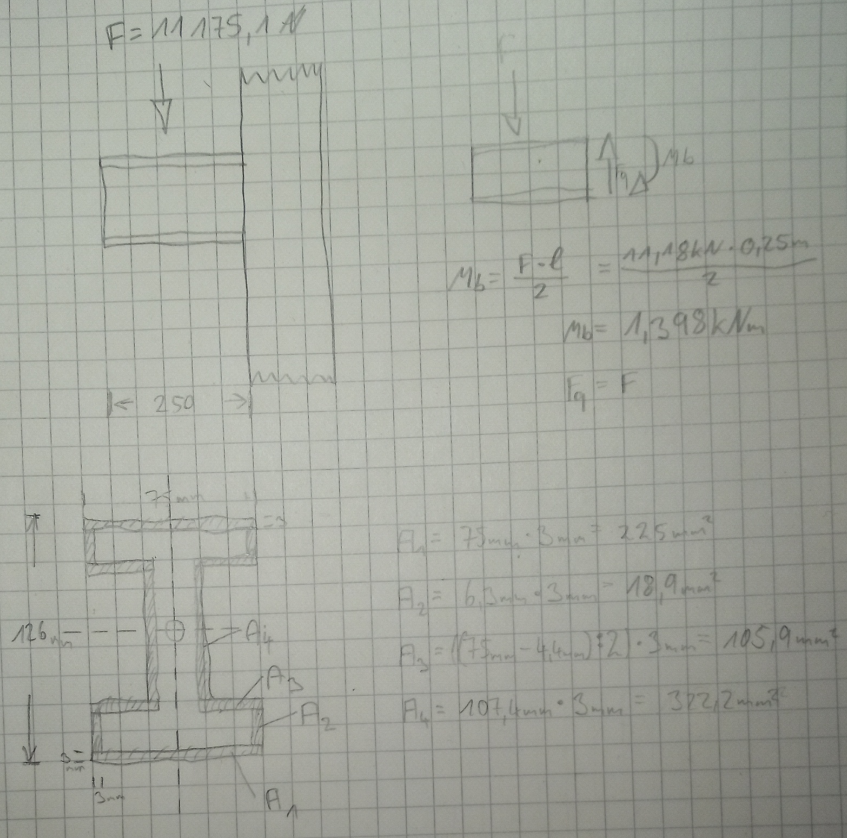 F = 11175,1 N
F
Fq
Mb
Mb = F·l/2 = 11,18kN·0,25m/2
Mb = 1,398kNm
Fq = F
250
75mm
126mm
A4
A3
A2
3mm
A1
A1 = 75mm·3mm = 225mm²
A2 = 6,3mm·3mm = 18,9mm²
A3 = ((75mm-4,4mm):2)·3mm = 105,9mm²
A4 = 107,4mm·3mm = 322,2mm²